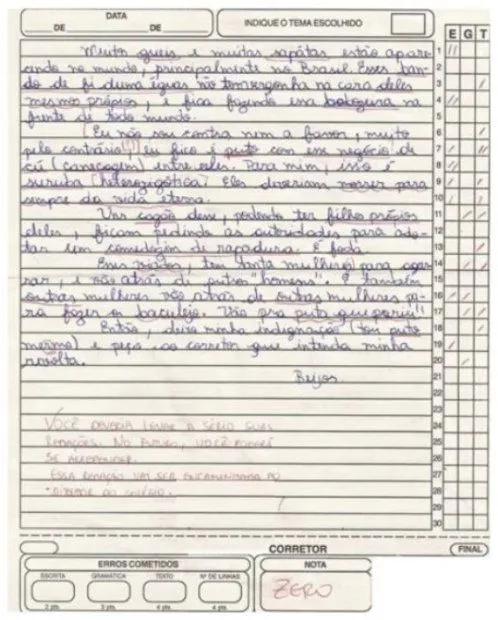 DATA
DE DE
INDIQUE O TEMA ESCOLHIDO
E G T
Muitos gueis e muitas sapátas estão apare-
cendo no mundo, principalmente no Brasil. Esses ban-
do de fi duma éguas não tem vergonha na cara deles
mesmos própios, e fica fazendo essa bobagura na
frente de todo mundo.
Eu não sou contra nem a favor, muito
pelo contrário! eu fico é puto com esse negócio de
cú (canecagem) entre eles. Para mim, isso é
suruba (heterozigótica). Eles deveriam morrer para
sempre da vida eterna.
Uns cagão desse, podendo ter filhos própios
deles, ficam pedindo as autoridades para ado-
tar um comedozim de rapadura. É foda.
Esses viados, tem tanta mulher para agar-
rar, e vão atrás de outros "homens". E também
outras mulheres vão atrás de outras mulheres pa-
ra fazer o baculejo. Vão pra puta que pariu!!
Então, deixo minha indignação (tou puto
mermo) e peço ao corretor que intenda minha
revolta.
Beijos
1
2
3
4
5
6
7
8
9
10
11
12
13
14
15
16
17
18
19
20
21
22
23
24
25
26
27
28
29
30
VOCÊ DEVERIA LEVAR A SÉRIO SUAS
REDAÇÕES. NO FUTURO, VOCÊ PODERÁ
SE ARREPENDER.
ESSA REDAÇÃO VAI SER ENCAMINHADA AO
DIRETOR DO COLÉGIO.
CORRETOR
FINAL
ERROS COMETIDOS
ESCRITA GRAMÁTICA TEXTO Nº DE LINHAS
2 pts. 3 pts. 4 pts. 4 pts.
NOTA
ZERO